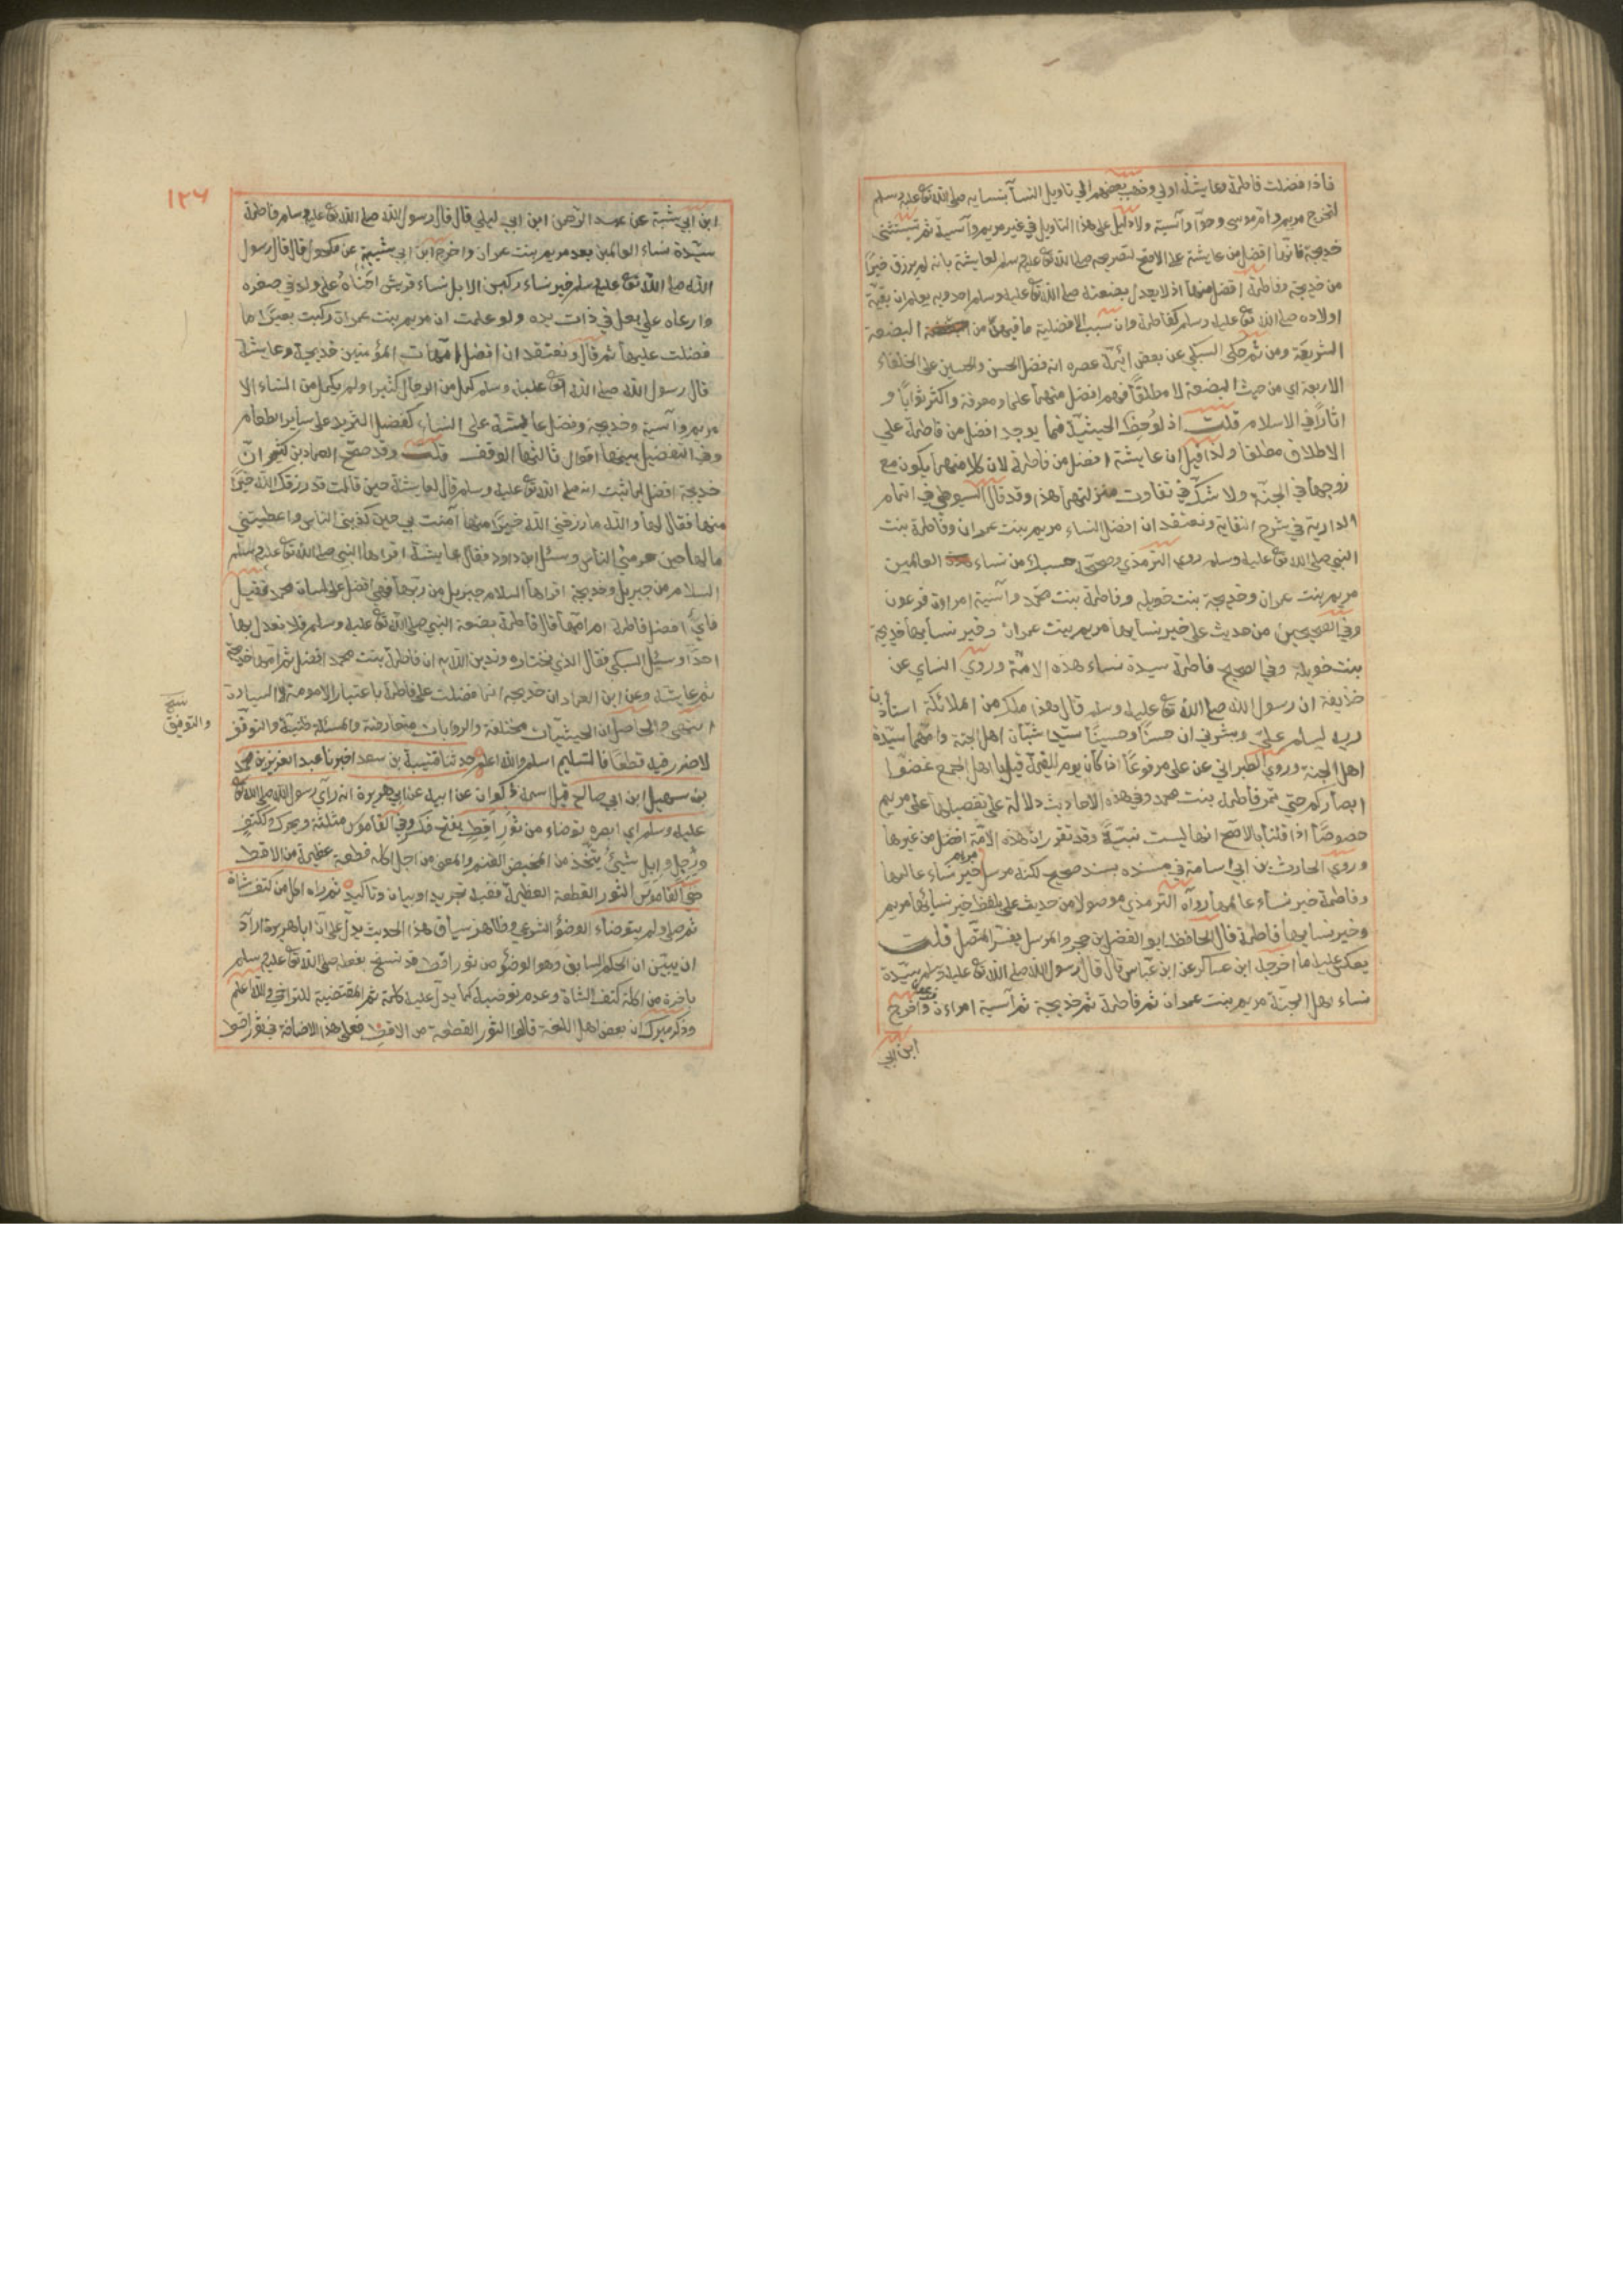 فاذا فضلت فاطمة فعايشة اولى وذهب بعضهم الى تاويل النسآ بنسايه صلى الله تع عليه وسلم
لتخرج مريم وام موسى وحوّا وآسية ولا دليل على هذا التاويل في غير مريم وآسية ثم تستثنى
خديجة فانها افضل من عايشة على الاصح لتصريحه صلى الله تع عليه وسلم لعايشة بانه لم يرزق خيرًا
من خديجة وفاطمة افضل منهما اذ لا يعدل بضعته صلى الله تع عليه وسلم احد وبه يعلم ان بقية
اولاده صلى الله تع عليه وسلم كفاطمة وان سبب الافضلية ما فيهن من البضعة
الشريفة ومن ثم حكى السبكي عن بعض ائمة عصره انه فضل الحسن والحسين على الخلفاء
الاربعة اي من حيث البضعة لا مطلقًا فهم افضل منهما علما ومعرفة واكثر ثوابًا و
اثارًا في الاسلام قلت اذ لوحظ الحيثية فما يوجد افضل من فاطمة على
الاطلاق مطلقا ولذا قيل ان عايشة افضل من فاطمة لان كلا منهما يكون مع
زوجها في الجنة ولا شك في تفاوت منزلتهما هذا وقد قال السيوطي في اتمام
الدارية في شرح النقاية ونعتقد ان افضل النساء مريم بنت عمران وفاطمة بنت
النبي صلى الله تع عليه وسلم روى الترمذي وصححه حسبك من نساء العالمين
مريم بنت عمران وخديجة بنت خويلد وفاطمة بنت محمد وآسية امراة فرعون
وفي الصحيحين من حديث علي خير نسايها مريم بنت عمران وخير نسايها خديجة
بنت خويلد وفي الصحيح فاطمة سيدة نساء هذه الامة وروى النساي عن
حذيفة ان رسول الله صلى الله تع عليه وسلم قال هذا ملك من الملائكة استاذن
ربه ليسلم علي وبشرني ان حسنًا وحسينًا سيدا شباب اهل الجنة وامهما سيدة
اهل الجنة وروى الطبراني عن علي مرفوعًا اذا كان يوم القيمة قيل يا اهل الجمع غضوا
ابصاركم حتى تمر فاطمة بنت محمد وفي هذه الاحاديث دلالة على تفضيلها على مريم
خصوصًا اذا قلنا بالاصح انها ليست نبيةً وقد تقرر ان هذه الامة افضل من غيرها
وروى الحارث بن ابي اسامة في مسنده بسند صحيح لكنه مرسل مريم خير نساء عالمها
وفاطمة خير نساء عالمها رواه الترمذي موصولا من حديث علي بلفظ خير نسائها مريم
وخير نسايها فاطمة قال الحافظ ابو الفضل ابن حجر والمرسل يفسر المتصل قلت
يعكر عليه ما اخرجه ابن عساكر عن ابن عباس قال قال رسول الله صلى الله تع عليه وسلم سيدة
نساء اهل الجنة مريم بنت عمران ثم فاطمة ثم خديجة ثم آسية امراءة فرعون واخرج
ابن ابي
١٢٦
ابن ابي شيبة عن عبد الرحمن ابن ابي ليلى قال قال رسول الله صلى الله تع عليه وسلم فاطمة
سيدة نساء العالمين بعد مريم بنت عمران واخرج ابن ابي شيبة عن مكحول قال قال رسول
الله صلى الله تع عليه وسلم خير نساء ركبن الابل نساء قريش احناه على ولد في صغره
وارعاه على بعل في ذات يده ولو علمت ان مريم بنت عمران ركبت بعيرًا ما
فضلت عليها ثم قال ونعتقد ان افضل امهات المؤمنين خديجة وعايشة
قال رسول الله صلى الله تع عليه وسلم كمل من الرجال كثيرا ولم يكمل من النساء الا
مريم وآسية وخديجة وفضل عايشة على النساء كفضل الثريد على ساير الطعام
وفي التفضيل بينهما اقوال ثالثها الوقف قلت وقد صحح العماد بن كثير ان
خديجة افضل لما ثبت انه صلى الله تع عليه وسلم قال لعايشة حين قالت قد رزقك الله خيرًا
منها فقال لها والله ما رزقني الله خيرًا منها آمنت بي حين كذبني الناس واعطيتني
مالها حين حرمني الناس وسئل ابن داود فقال عايشة اقراها النبي صلى الله تع عليه وسلم
السلام من جبريل وخديجة اقراها السلام جبريل من ربها فهي افضل على لسان محمد فقيل
فاي افضل فاطمة ام امها قال فاطمة بضعة النبي صلى الله تع عليه وسلم فلا نعدل بها
احدًا وسئل السبكي فقال الذي نختاره وندين الله به ان فاطمة بنت محمد افضل ثم امها خديجة
ثم عايشة وعن ابن العماد ان خديجة انما فضلت على فاطمة باعتبار الامومة لا السيادة
انتهى والحاصل ان الحيثيات مختلفة والروايات متعارضة والمسئلة ظنية والتوقف
والتوفيق
لا ضرر فيه قطعًا فالتسليم اسلم والله اعلم حدثنا قتيبة بن سعد اخبرنا عبد العزيز بن محمد
بن سهيل ابن ابي صالح قيل اسمه ذكوان عن ابيه عن ابي هريرة انه رآى رسول الله صلى الله تع
عليه وسلم اي ابصره توضاء من ثور اقط بفتح فكسر وفي القاموس مثلثة ويحرك وككتف
ورجل وابل شيئ يتخذ من المخيض الغنم والمعنى من اجل اكله قطعة عظيمة من الاقط
ففي القاموس الثور القطعة العظيمة ففيه تجريد او بيان وتاكيد ثم راه اكل من كتف شاة
ثم صلى ولم يتوضاء الوضوء الشرعي وظاهر سياق هذا الحديث يدل على ان ابا هريرة اراد
ان يبين ان الحكم السابق وهو الوضوء من ثور اقط قد نسخ بفعله صلى الله تع عليه وسلم
باخرة من اكله كتف الشاة وعدم توضيه كما يدل عليه كلمة ثم المقتضية للتراخي والله اعلم
وذكر ميرك ان بعض اهل اللغة قالوا الثور القطعة من الاقط فعلى هذا الاضافة في ثور اقط